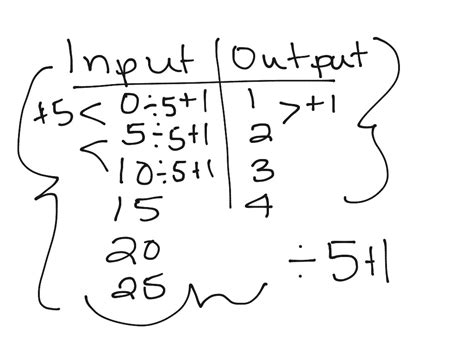 Input Output
+5 < 0÷5+1 1 > +1
< 5÷5+1 2
10÷5+1 3
15 4
20
÷5+1
25